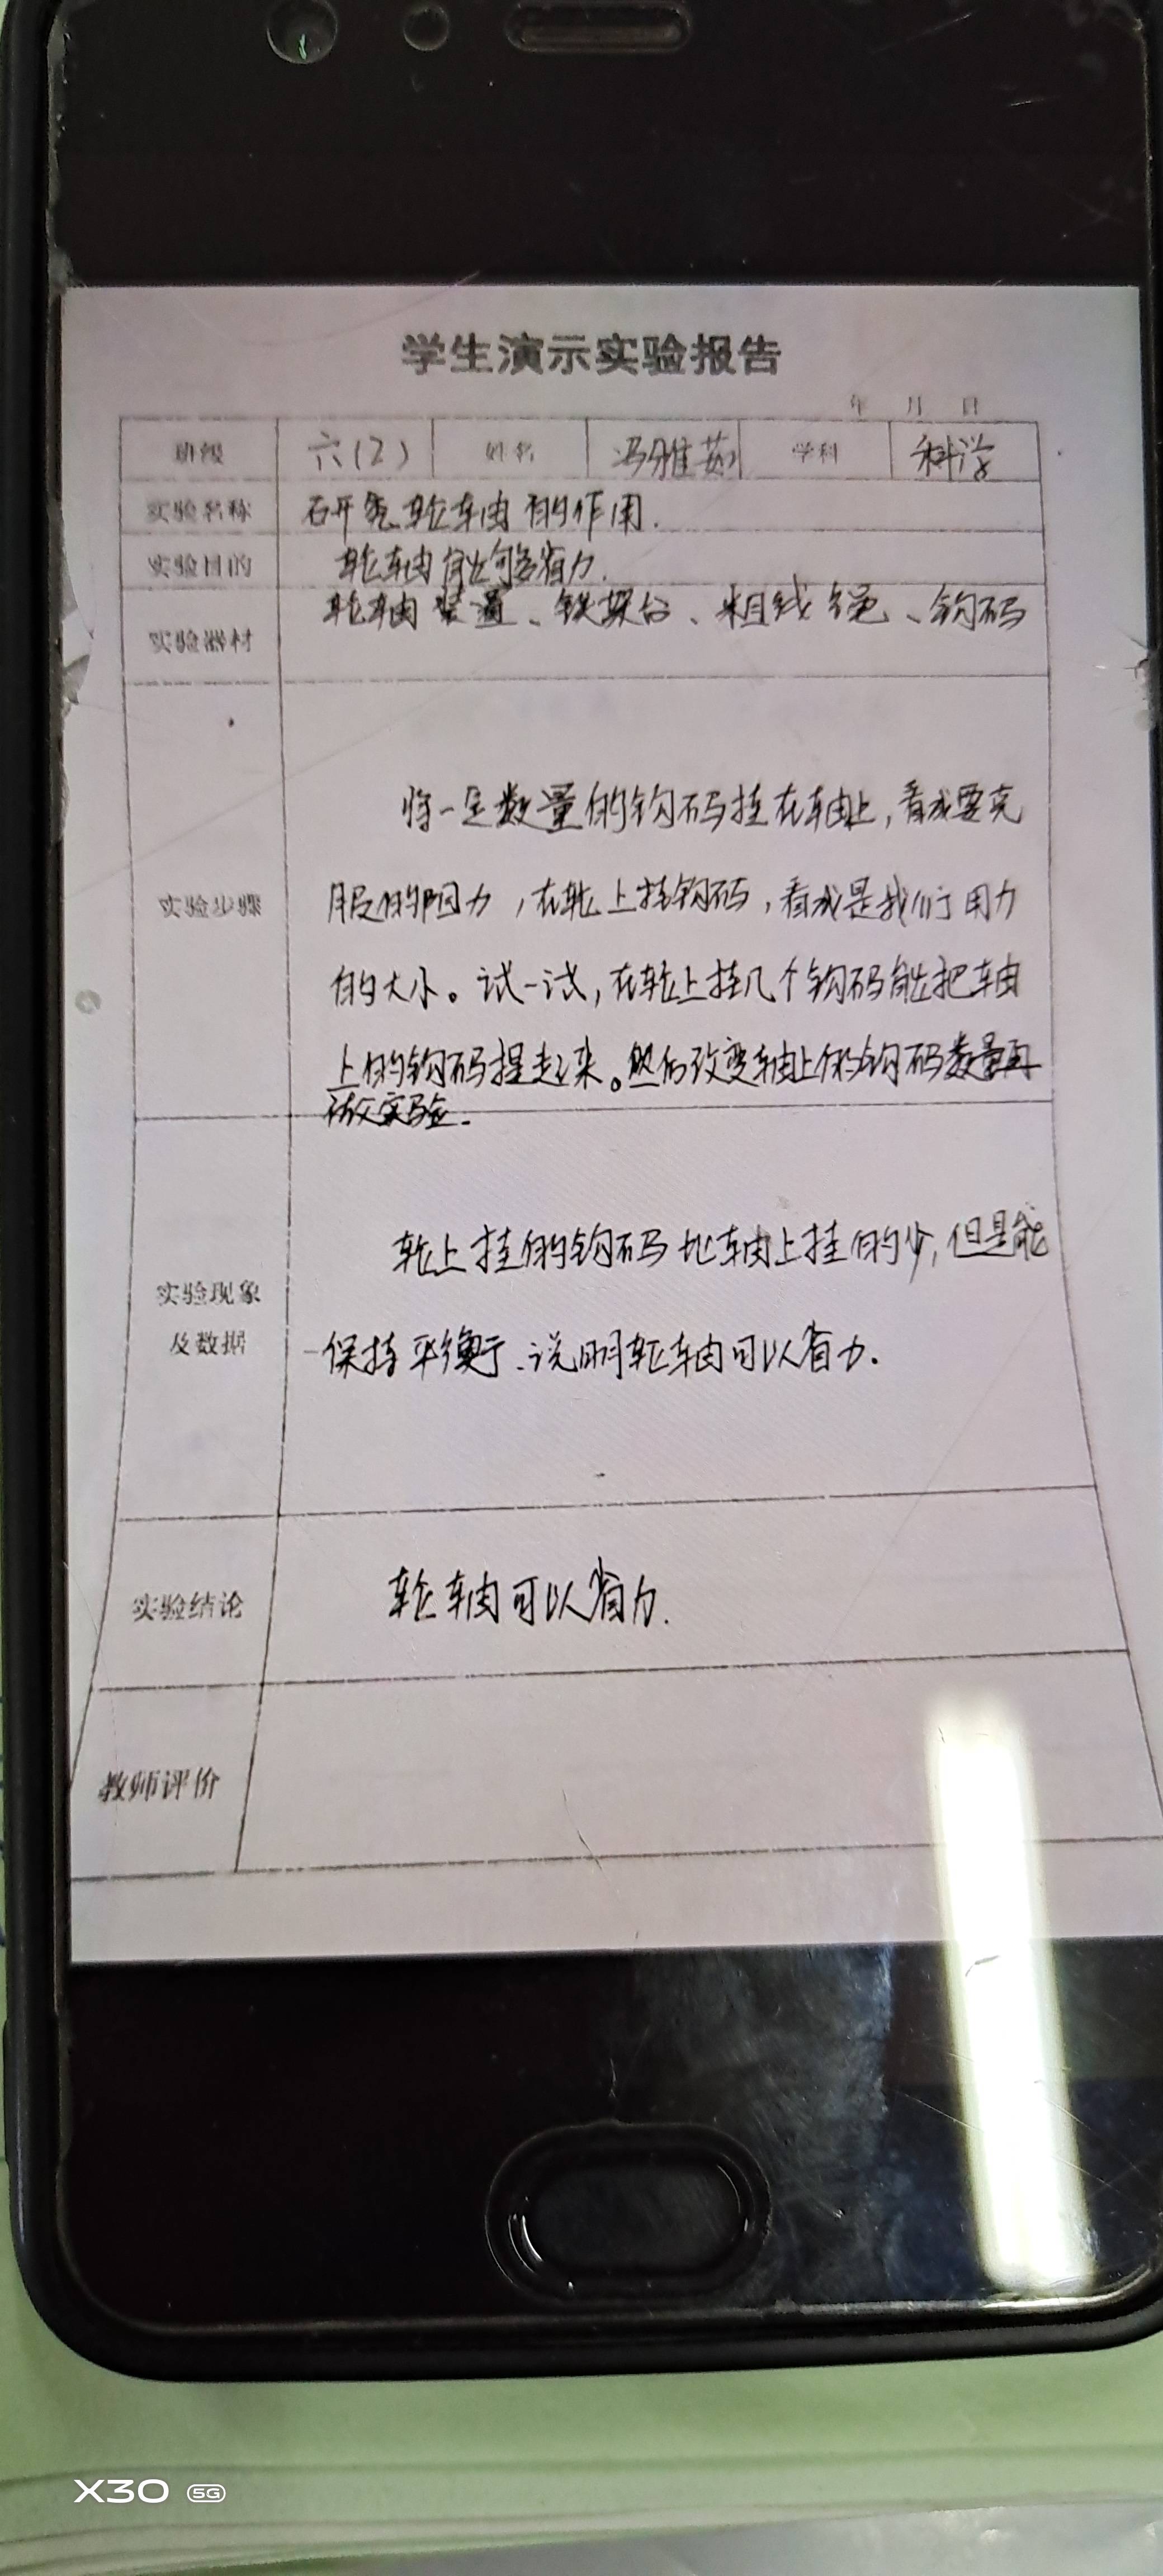 学生演示实验报告
年 月 日
班级 六(2) 姓名 冯雅茹 学科 科学
实验名称 研究轮轴的作用.
实验目的 轮轴能够省力.
实验器材 轮轴装置、铁架台、粗线绳、钩码
实验步骤
将一定数量的钩码挂在轴上,看成要克
服的阻力,在轮上挂钩码,看成是我们用力
的大小。试一试,在轮上挂几个钩码能把轴
上的钩码提起来。然后改变轴上的钩码数量再
做实验.
实验现象
及数据
轮上挂的钩码比轴上挂的少,但是能
保持平衡.说明轮轴可以省力.
实验结论 轮轴可以省力.
教师评价
X30 5G